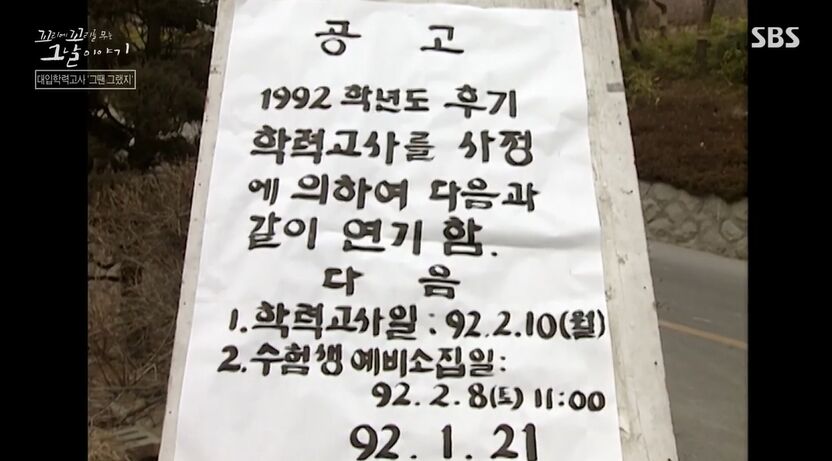 꼬리에 꼬리를 무는
그날 이야기
대입학력고사 '그땐 그랬지'
SBS
공 고
1992 학년도 후기
학력고사를 사정
에 의하여 다음과
같이 연기 함.
다 음
1. 학력고사일 : 92.2.10(월)
2. 수험생 예비소집일:
92. 2. 8(토) 11:00
92. 1. 21